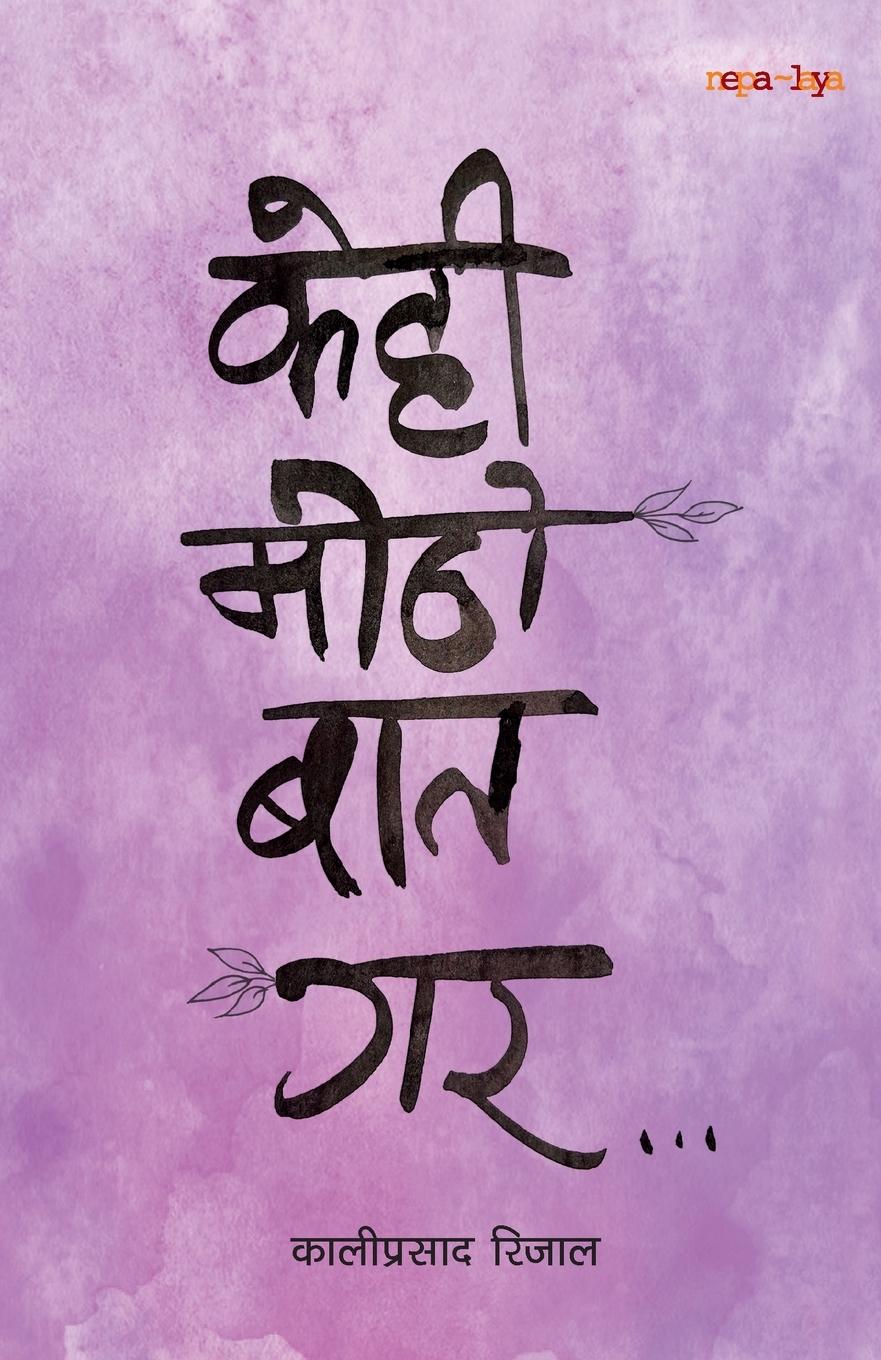 nepa~laya
केही
मीठो
बात
गर...
कालीप्रसाद रिजाल